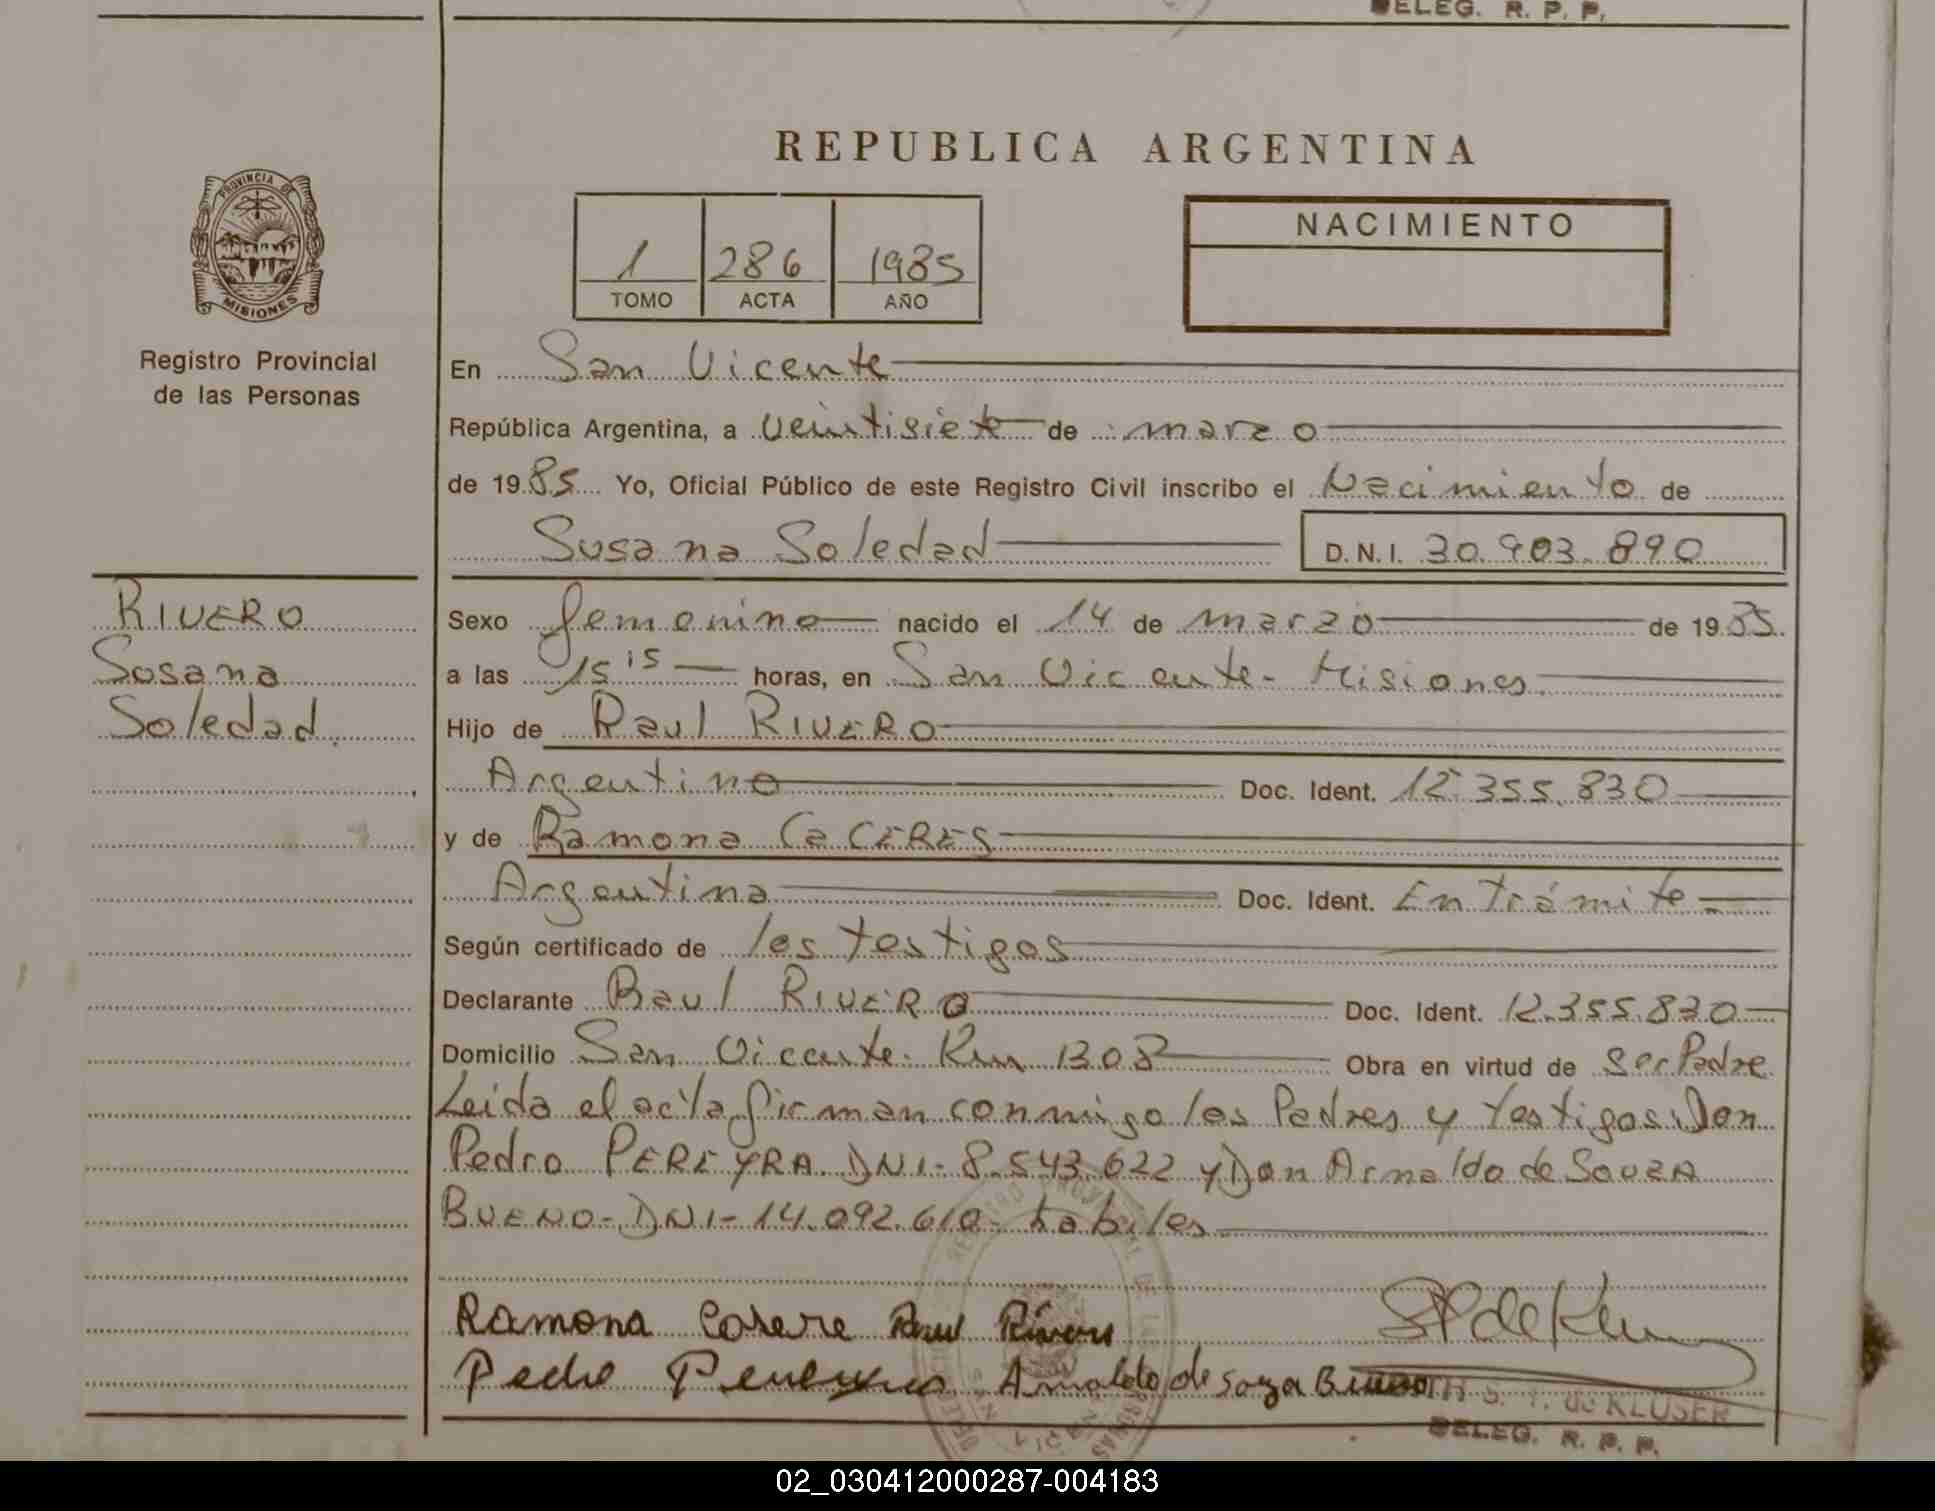 DELEG. R. P. P.
REPUBLICA ARGENTINA
PROVINCIA DE
MISIONES
Registro Provincial
de las Personas
1 286 1985
TOMO ACTA AÑO
NACIMIENTO
En San Vicente
República Argentina, a veintisiete de marzo
de 1985 Yo, Oficial Público de este Registro Civil inscribo el Nacimiento de
Susana Soledad D.N.I. 30.903.890
RIVERO
Susana
Soledad.
Sexo femenino nacido el 14 de marzo de 1985.
a las 15 15 horas, en San Vicente - Misiones.
Hijo de Raul RIVERO
Argentino Doc. Ident. 12.355.830
y de Ramona CaCERES
Argentina Doc. Ident. En Trámite
Según certificado de los testigos
Declarante Raul RIVERO Doc. Ident. 12.355.830
Domicilio San Vicente. Km 1308 Obra en virtud de Ser Padre
Leida el acta firman conmigo los Padres y testigos: Don
Pedro PEREYRA DNI- 8.543.622 y Don Arnaldo de SOUZA
BUENO- DNI- 14.092.610- habiles
Ramona Casere Raul Rivero
Pedro Pereyra Arnaldo de Soza Bueno
S. T. de KLUSER
DELEG. R. P. P.
02_030412000287-004183